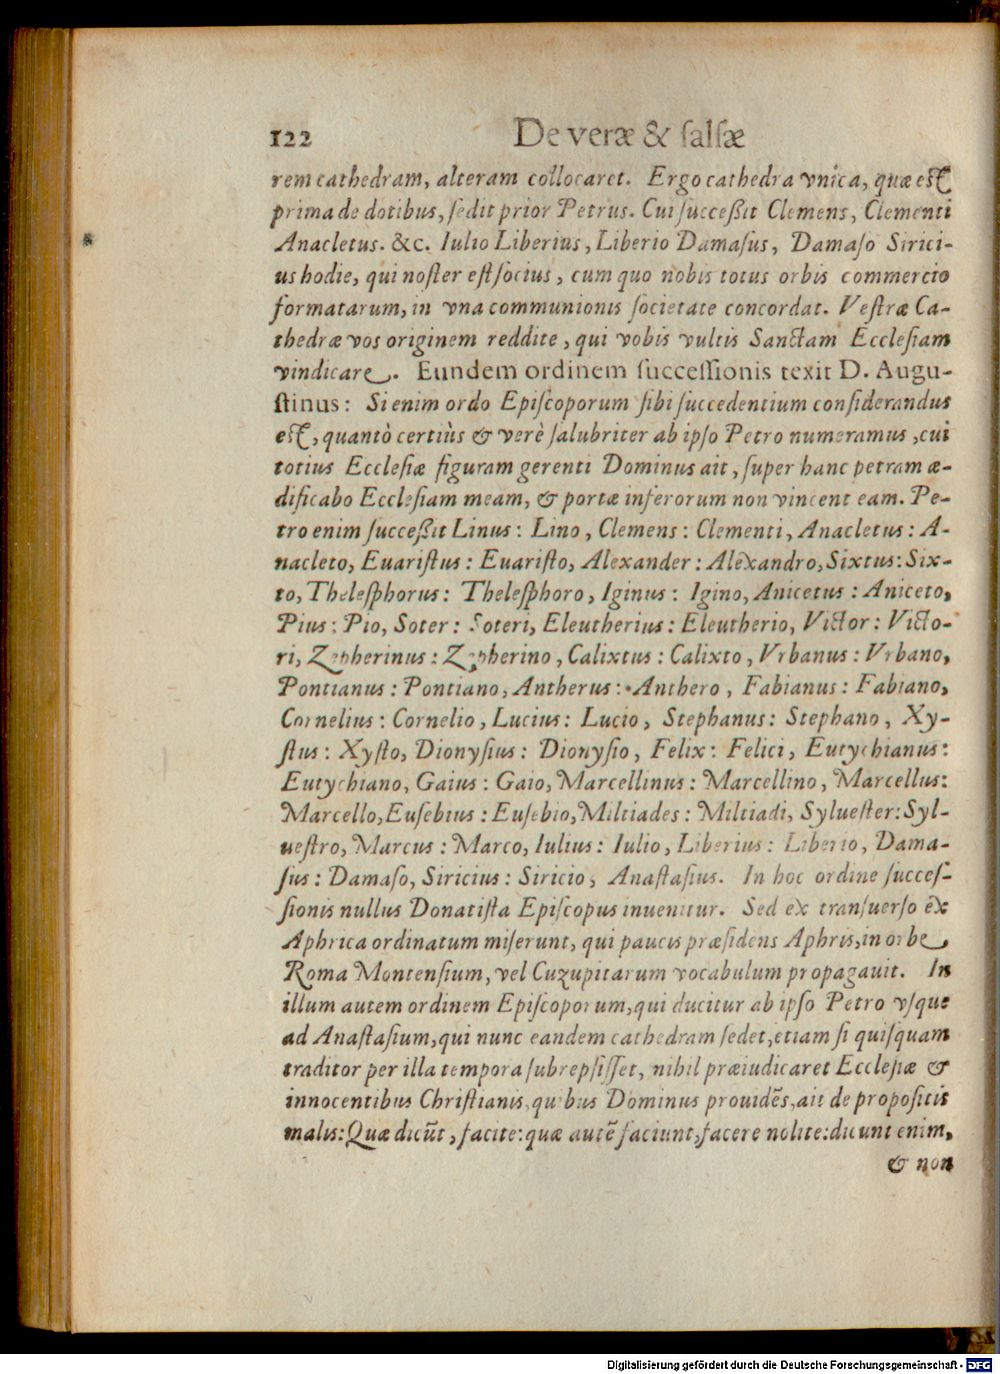 122 De veræ & falsæ
rem cathedram, alteram collocaret. Ergo cathedra vnica, quæ est
prima de dotibus, ſedit prior Petrus. Cui ſucceßit Clemens, Clementi
Anacletus. &c. Iulio Liberius, Liberio Damaſus, Damaſo Sirici-
us hodie, qui noſter eſt ſocius, cum quo nobis totus orbis commercio
formatarum, in vna communionis ſocietate concordat. Veſtræ Ca-
thedræ vos originem reddite, qui vobis vultis Sanctam Eccleſiam
vindicare. Eundem ordinem ſucceſſionis texit D. Augu-
ſtinus: Si enim ordo Epiſcoporum ſibi ſuccedentium conſiderandus
est, quantò certiùs & verè ſalubriter ab ipſo Petro numeramus, cui
totius Eccleſiæ figuram gerenti Dominus ait, ſuper hanc petram æ-
dificabo Eccleſiam meam, & portæ inferorum non vincent eam. Pe-
tro enim ſucceßit Linus: Lino, Clemens: Clementi, Anacletus: A-
nacleto, Euariſtus: Euariſto, Alexander: Alexandro, Sixtus: Six-
to, Theleſphorus: Theleſphoro, Iginus: Igino, Anicetus: Aniceto,
Pius: Pio, Soter: Soteri, Eleutherius: Eleutherio, Victor: Victo-
ri, Zepherinus: Zepherino, Calixtus: Calixto, Vrbanus: Vrbano,
Pontianus: Pontiano, Antherus: Anthero, Fabianus: Fabiano,
Cornelius: Cornelio, Lucius: Lucio, Stephanus: Stephano, Xy-
ſtus: Xyſto, Dionyſius: Dionyſio, Felix: Felici, Eutychianus:
Eutychiano, Gaius: Gaio, Marcellinus: Marcellino, Marcellus:
Marcello, Euſebius: Euſebio, Miltiades: Miltiadi, Sylueſter: Syl-
ueſtro, Marcus: Marco, Iulius: Iulio, Liberius: Liberio, Dama-
ſus: Damaſo, Siricius: Siricio, Anaſtaſius. In hoc ordine ſucceſ-
ſionis nullus Donatiſta Epiſcopus inuenitur. Sed ex tranſuerſo ex
Aphrica ordinatum miſerunt, qui paucis præſidens Aphris, in orbe
Roma Montenſium, vel Cuzupitarum vocabulum propagauit. In
illum autem ordinem Epiſcoporum, qui ducitur ab ipſo Petro vſque
ad Anaſtaſium, qui nunc eandem cathedram ſedet, etiam ſi quiſquam
traditor per illa tempora ſubrepſiſſet, nihil præiudicaret Eccleſiæ &
innocentibus Chriſtianis, quibus Dominus prouidẽs, ait de propoſitis
malis: Quæ dicũt, facite: quæ autẽ faciunt, facere nolite: dicunt enim,
& non
Digitalisierung gefördert durch die Deutsche Forschungsgemeinschaft - DFG